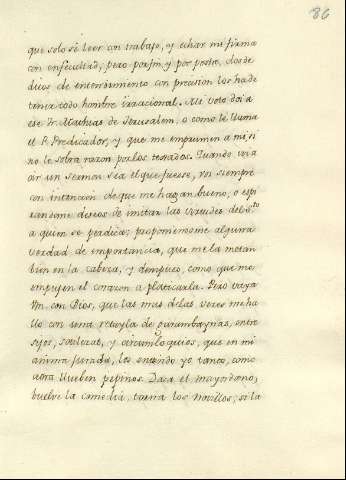 86
que solo sé leer con trabajo, y echar mi firma
con dificultad; pero por fin, y por postre, dos de
dicos de entendimiento con precision los ha de
tener todo hombre irracional. Mi voto doi a
ese Dr. Mathias de Jerusalem, o como le llama
el P. Predicador, y que me empriman a mi, si
no le sobra razon por los tejados. Quando voi a
oir un sermon sea el que fuesse, voi siempre
con intencion de que me hagan bueno, o espi
randome deseos de imitar las virtudes del Sto.
a quien se predica; proponiendome alguna
verdad de importancia, que me la metan
bien en la cabeza, y despues, como que me
empujen el corazon a platicarla. Pero vaya
Vm. con Dios, que las mas de las veces me ha
llo con una retayla de garambaynas, entre
sijos, sotilezas, y circumloquios, que en mi
anima jurada, los entiendo yo tanto, como
aora llueben pepinos. Daca el mayordomo,
buelve la comedia, torna los Novillos; si la